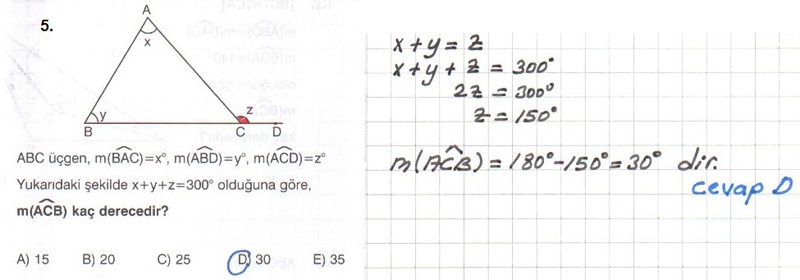 5.
A
x
y
z
B
C
D
ABC üçgen, m(BAC)=x°, m(ABD)=y°, m(ACD)=z°
Yukarıdaki şekilde x+y+z=300° olduğuna göre,
m(ACB) kaç derecedir?
A) 15 B) 20 C) 25 D) 30 E) 35
x+y = z
x+y+z = 300°
2z = 300°
z = 150°
m(ACB) = 180°-150° = 30° dir.
cevap D